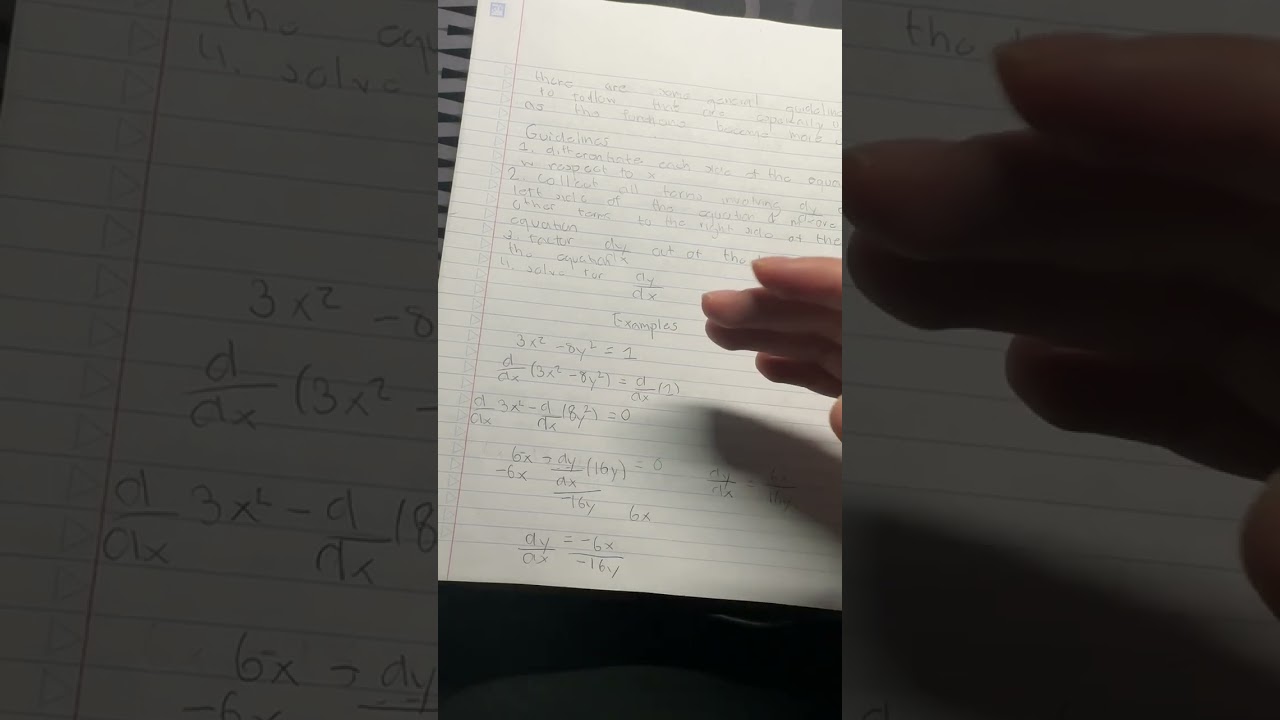 there are some general guidelin
to follow that are especially
as the functions become more
Guidelines
1. differentiate each side of the equa
w respect to x
2. collect all terms involving dy
left side of the equation & move
other terms to the right side of the
equation
3. factor dy/x out of the
the equation
4. solve for dy/dx
Examples
3x² - 8y² = 1
d/dx (3x² - 8y²) = d/dx (1)
d/dx 3x² - d/dx (8y²) = 0
6x - dy/dx (16y) = 0
-6x
-16y 6x
dy/dx = 6x/16y
dy/dx = -6x/-16y